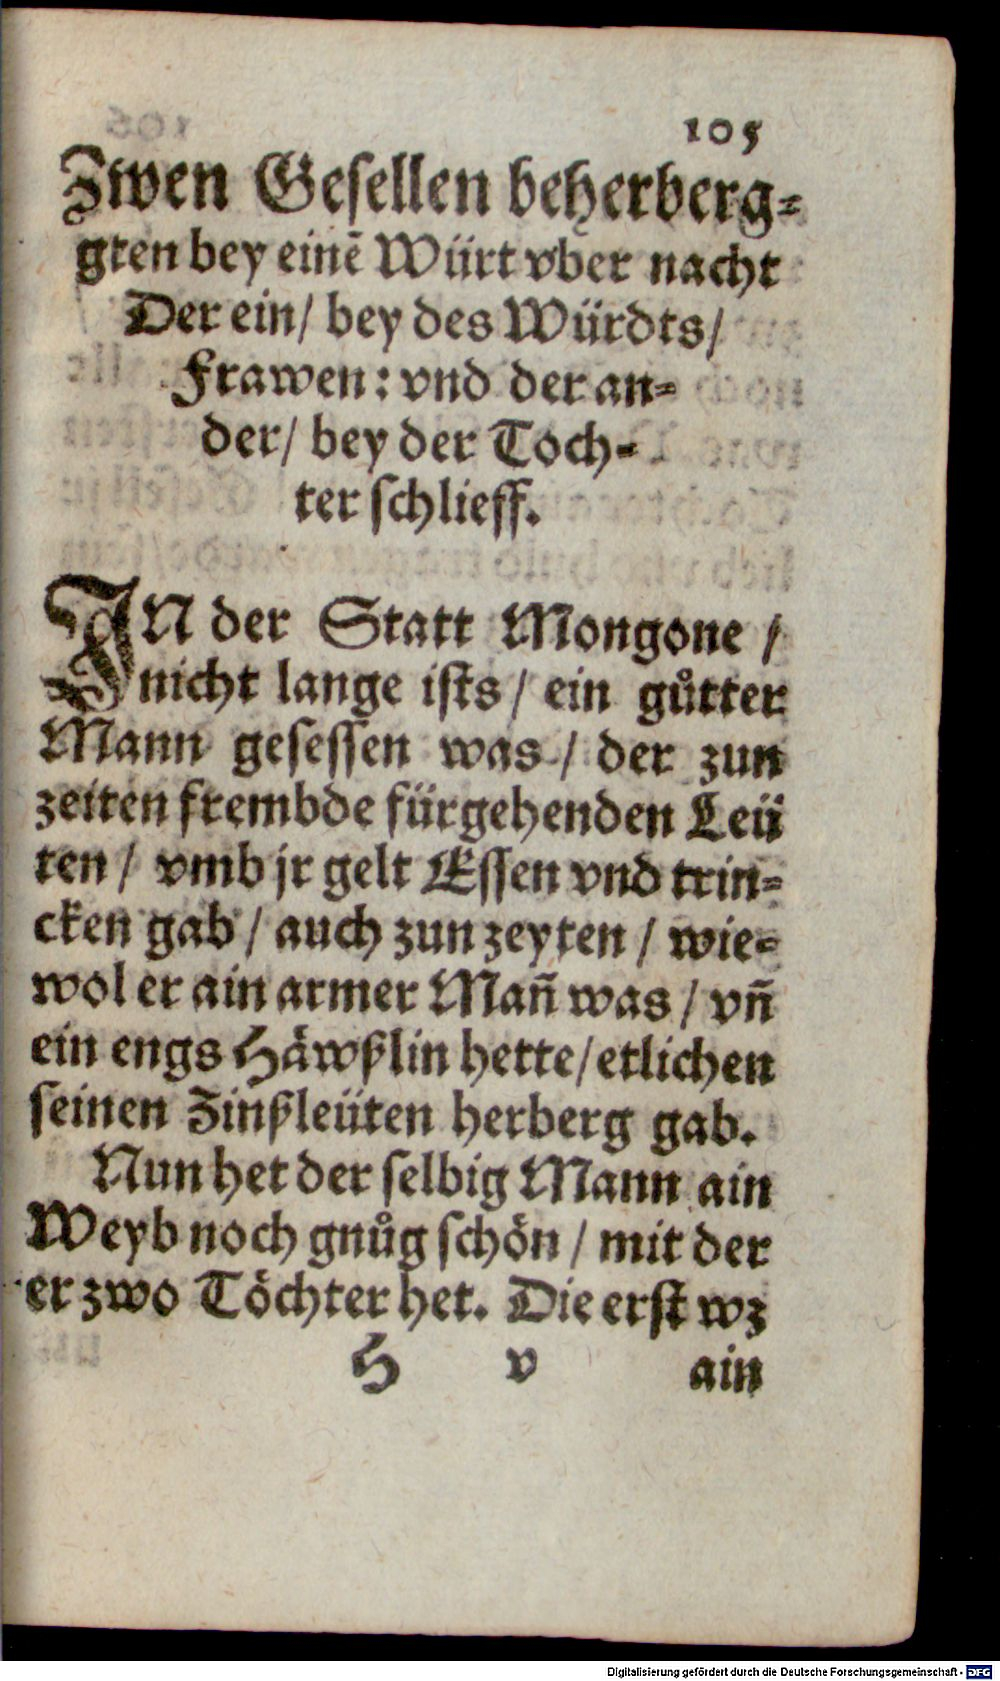 105
Zwen Gesellen beherberg⸗
gten bey einē Würt vber nacht
Der ein/ bey des Würdts/
Frawen: vnd der an⸗
der/ bey der Toch⸗
ter schlieff.
IN der Statt Mongone /
nicht lange ists / ein gůtter
Mann gesessen was / der zun
zeiten frembde fürgehenden Leü
ten / vmb jr gelt Essen vnd trin⸗
cken gab / auch zun zeyten / wie⸗
wol er ain armer Mañ was / vñ
ein engs Häwßlin hette / etlichen
seinen Zinßleüten herberg gab.
Nun het der selbig Mann ain
Weyb noch gnůg schön / mit der
er zwo Töchter het. Die erst wz
H v ain
Digitalisierung gefördert durch die Deutsche Forschungsgemeinschaft - DFG